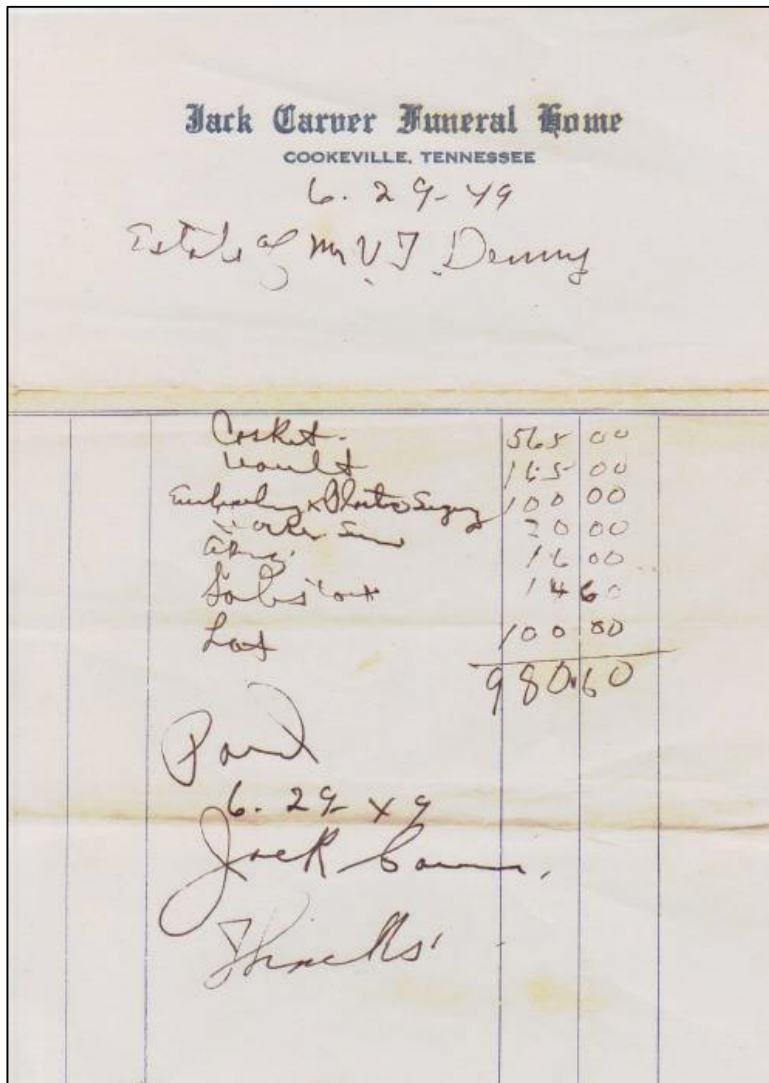 Jack Carver Funeral Home
COOKEVILLE, TENNESSEE
6. 29-49
Estate of Mr V T Denny
Casket. 565 00
Vault 165 00
Embalming & Plastic Surgery 100 00
20 00
16 00
Sales tax 14 60
Lot 100 00
980.60
Paid
6. 29-49
Jack Carver.
Thanks